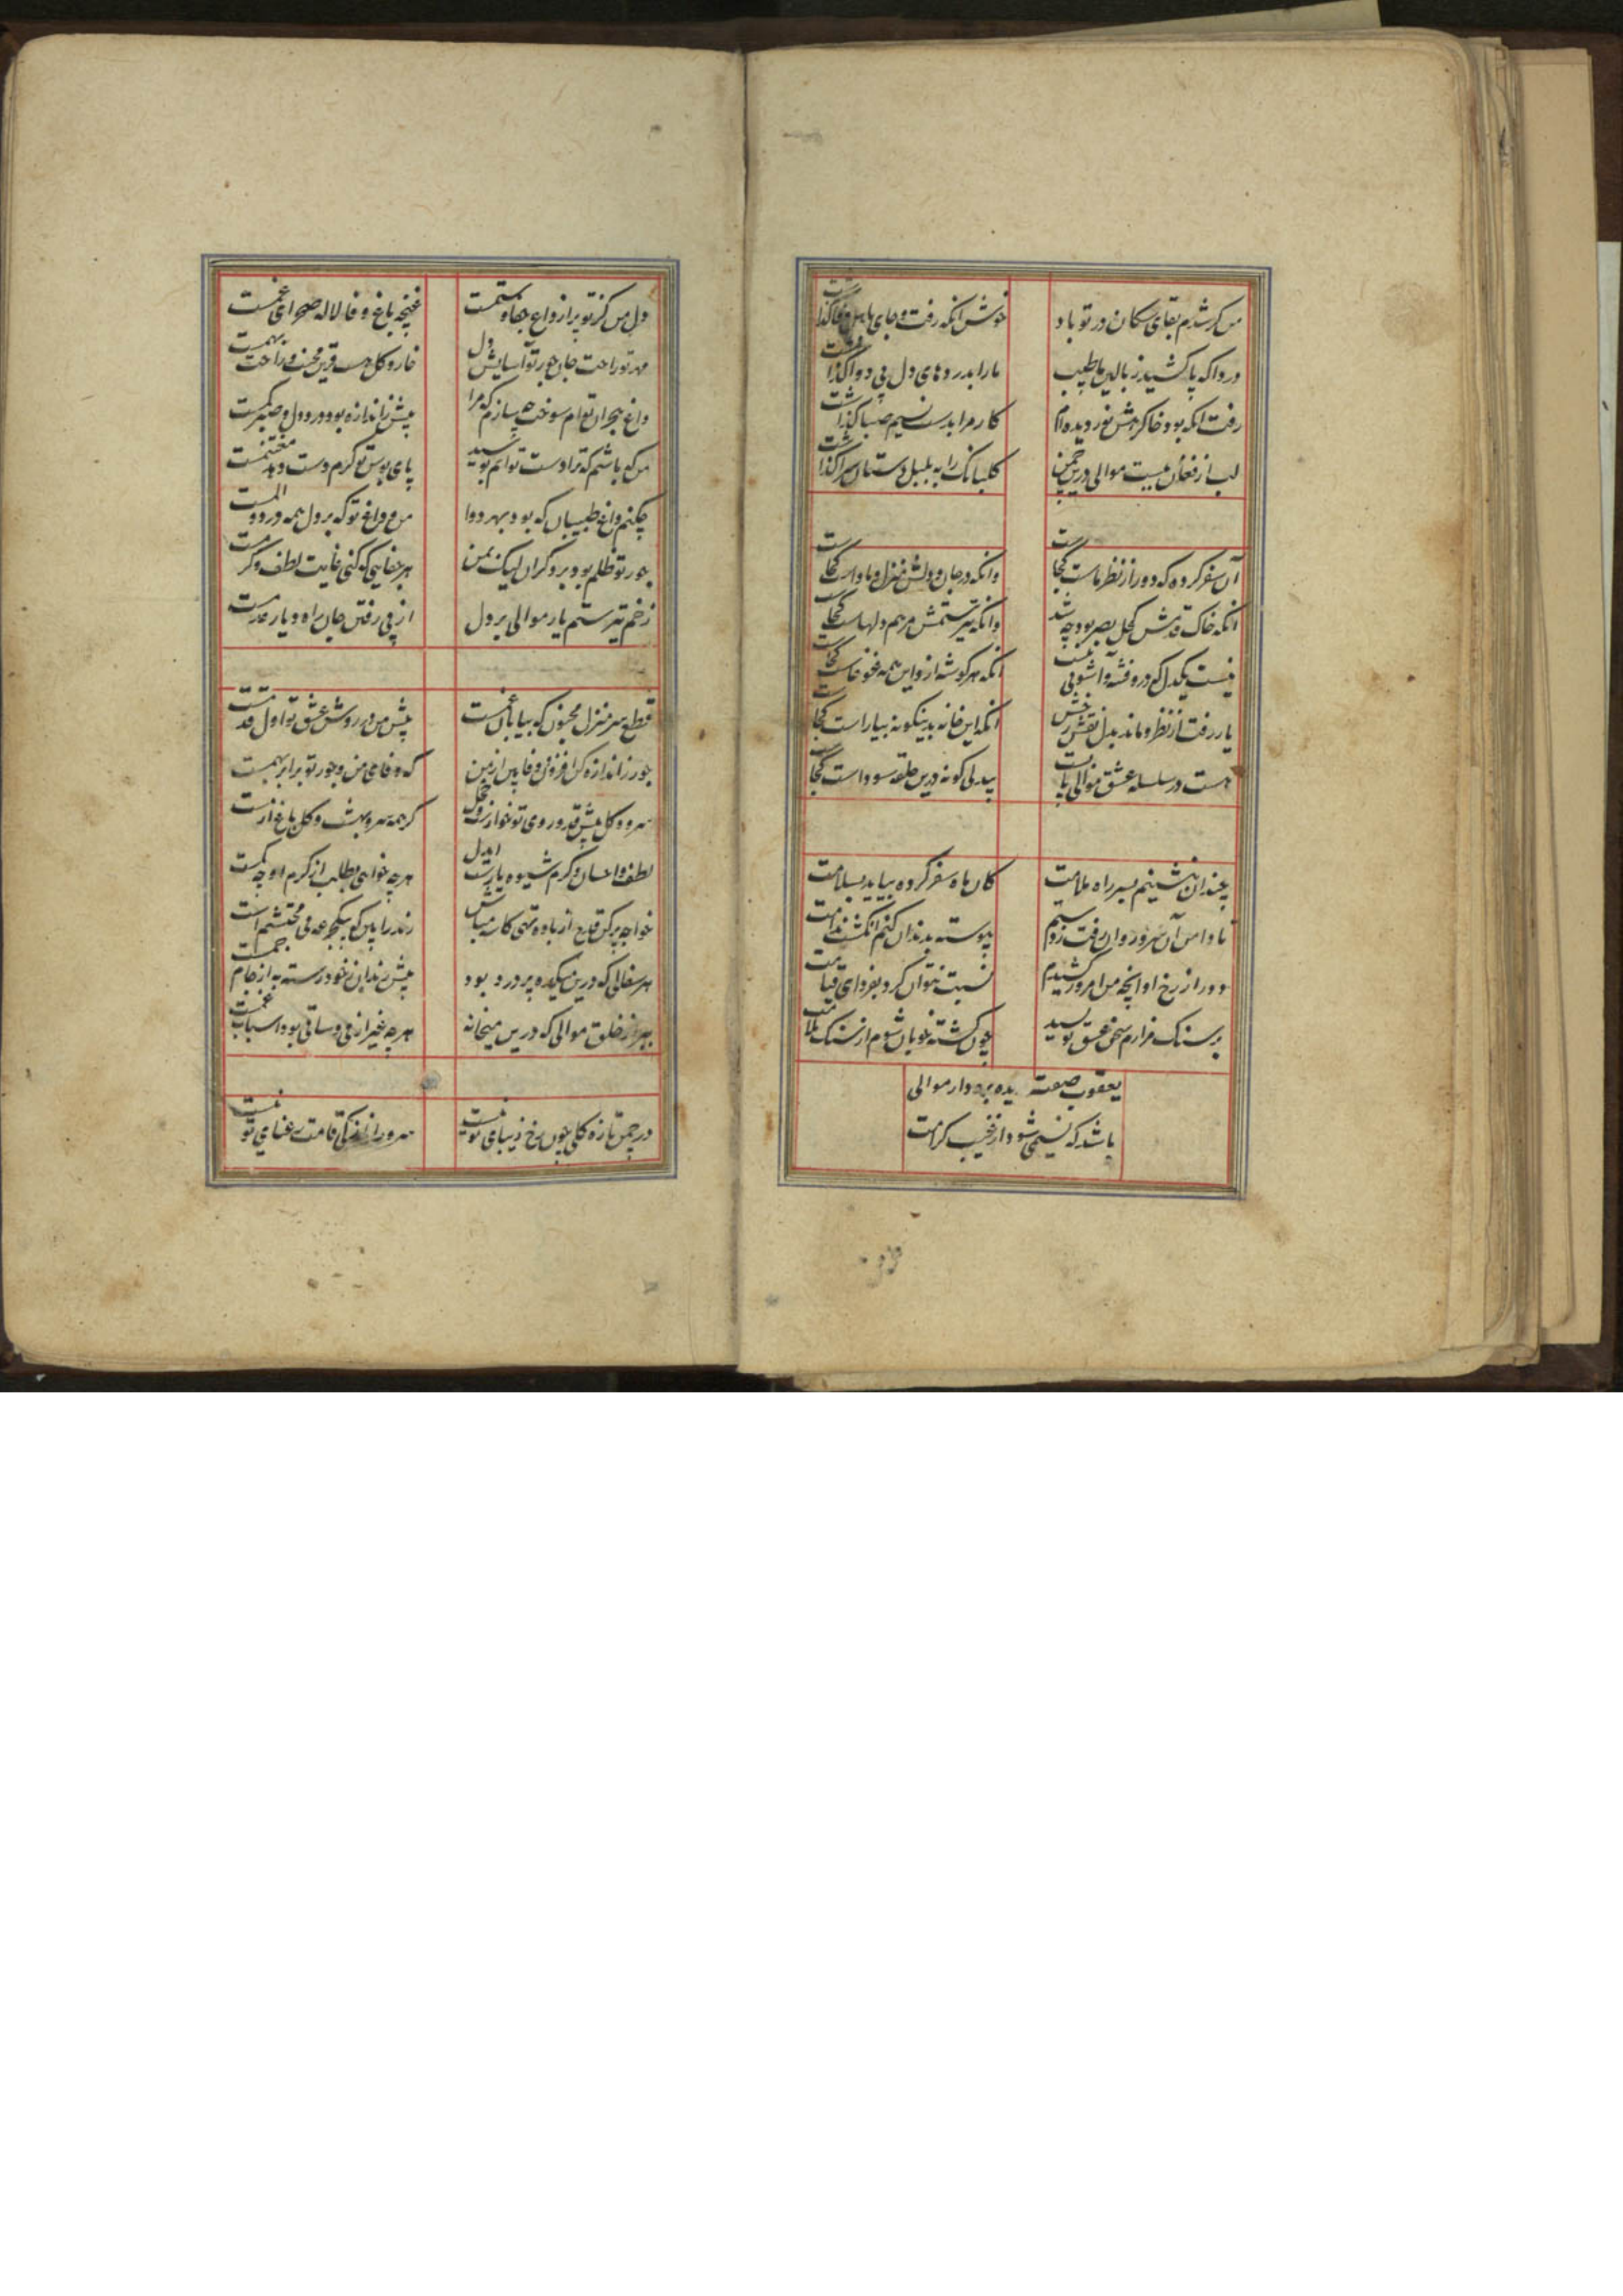 من کر شدم بقای سکان در تو باد
خوش انکه رفت و جای باهل وفا گذاشت
دردا که پا کشید ز بالین ما طبیب
ما را بدردهای دل بی دوا گذاشت
رفت انکه بود خاک رهش نور دیده ام
کار مرا بدست نسیم صبا گذاشت
لب از فغان مبست موالی درین چمن
کلبانک را به بلبل دستان سرا گذاشت
آن سفر کرده که دور از نظر ماست کجاست
وانکه در جان و دلش منزل و ماواست کجاست
انکه خاک قدمش کحل بصر بود چه شد
وانکه تیر ستمش مرهم دلهاست کجاست
نیست یکدل که درو فتنه و آشوبی نیست
انکه هر کوشه ازو این همه غوغاست کجاست
یار رفت از نظر و ماند بدل نقش رخش
انکه این خانه بدینکونه بیاراست کجاست
هست در سلسله عشق موالی پا بست
بیدلی کو نه درین حلقه سوداست کجاست
چندان بنشینم بسر راه ملامت
کان ماه سفر کرده بیاید بسلامت
تا دامن آن سرو روان رفت ز دستم
پیوسته بدندان کنم انکشت ندامت
دور از رخ او انچه من امروز کشیدم
نسبت نتوان کرد بفردای قیامت
بر سنک مزارم سخن عشق نویسید
چون کشته خوبان شوم از سنک ملامت
یعقوب صفت دیده بره دار موالی
باشد که نسیمی شود از غیب کرامت
دل من کز تو پر از داغ جفا و ستمست
غنچه باغ وفا لاله صحرای غمست
مهر تو راحت جان جور تو آسایش دل
خار و کل هست قرین محنت و راحت بهمست
داغ هجران توام سوخت چه سازم که مرا
بیش ز اندازه بود درد دل و صبر کمست
من که باشم که ترا دست توانم بوسید
پای بوس تو کرم دست دهد مغتنمست
چکنم داغ طبیبان که بود بهر دوا
من و داغ تو که بر دل همه درد و المست
جور تو ظلم بود بر دکران لیک بمن
هر جفایی که کنی غایت لطف و کرمست
زخم تیر ستم یار موالی بر دل
از پی رفتن جان راه دیار عدمست
قطع سر منزل مجنون که بیابان غمست
پیش من در روش عشق تو اول قدمست
جور ز اندازه کن افزون و فا پس از من
که وفای من و جور تو برابر بهمست
سرو و کل پیش قد و روی تو خوارند و خجل
کر همه سرو بهشت و کل باغ ارمست
لطف و احسان و کرم شیوه یارست ای دل
هر چه خواهی بطلب از کرم او چه کمست
خواجه پر کن قدح از باده تهی کاسه مباش
رند را بین که بیکجرعه می محتشم است
هر سفالی که درین میکده پر درد بود
پیش رندان ز خود رسته به از جام جمست
ببر از خلق موالی که درین میخانه
هر چه غیر از می و ساقی بود اسباب غمست
در چمن تازه کلی چون رخ زیبای تو نیست
سرو را نازکی قامت رعنای تو نیست